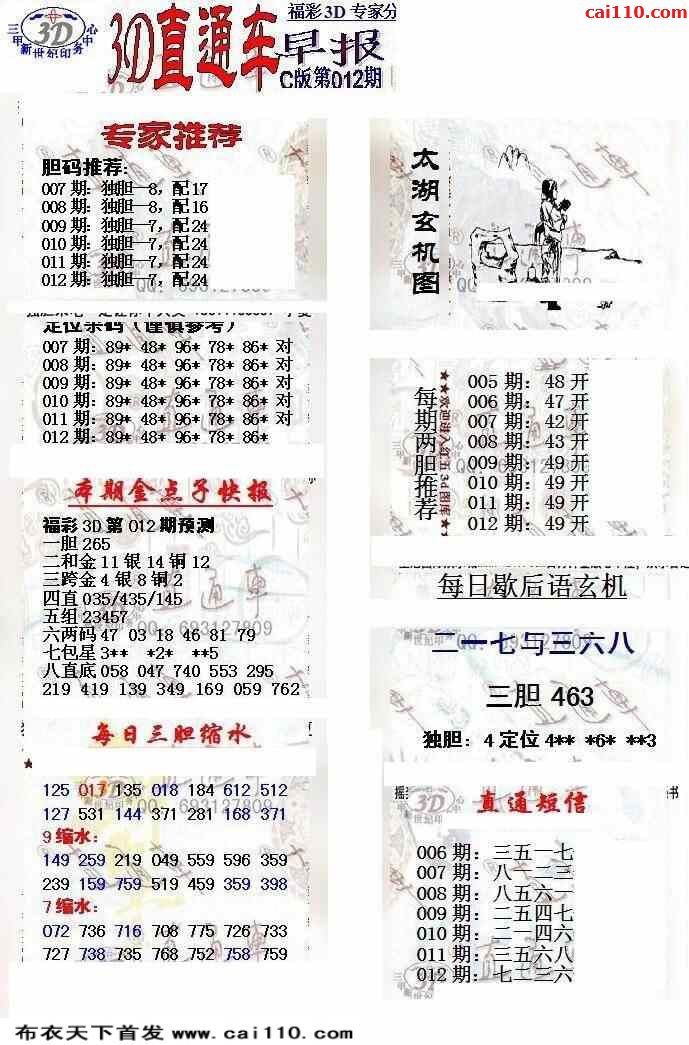 福彩3D专家分
cai110.com
三甲
3D
中心
新世纪印务
3D直通车
早报
C版第012期
专家推荐
胆码推荐:
007期:独胆—8,配17
008期:独胆—8,配16
009期:独胆—7,配24
010期:独胆—7,配24
011期:独胆—7,配24
012期:独胆—7,配24
定位杀码(谨慎参考)
007期:89* 48* 96* 78* 86*对
008期:89* 48* 96* 78* 86*对
009期:89* 48* 96* 78* 86*对
010期:89* 48* 96* 78* 86*对
011期:89* 48* 96* 78* 86*对
012期:89* 48* 96* 78* 86*
本期金点子快报
福彩3D第012期预测
一胆265
二和金11银14铜12
三跨金4银8铜2
四直035/435/145
五组23457
六两码47 03 18 46 81 79
七包星3** *2* **5
八直底058 047 740 553 295
219 419 139 349 169 059 762
每日三胆缩水
125 017 135 018 184 612 512
127 531 144 371 281 168 371
9缩水:
149 259 219 049 559 596 359
239 159 759 519 459 359 398
7缩水:
072 736 716 708 775 726 733
727 738 735 768 752 758 759
QQ:693127809
太湖玄机图
每期两胆推荐
★★欢迎进入红五3d图库★★
005期:48开
006期:47开
007期:42开
008期:43开
009期:49开
010期:49开
011期:49开
012期:49开
每日歇后语玄机
二一七与三六八
三胆 463
独胆:4定位4** *6* **3
直通短信
006期:三五一七
007期:八一二三
008期:八五六一
009期:二五四七
010期:二一四六
011期:三五六八
012期:七一三六
布衣天下首发 www.cai110.com